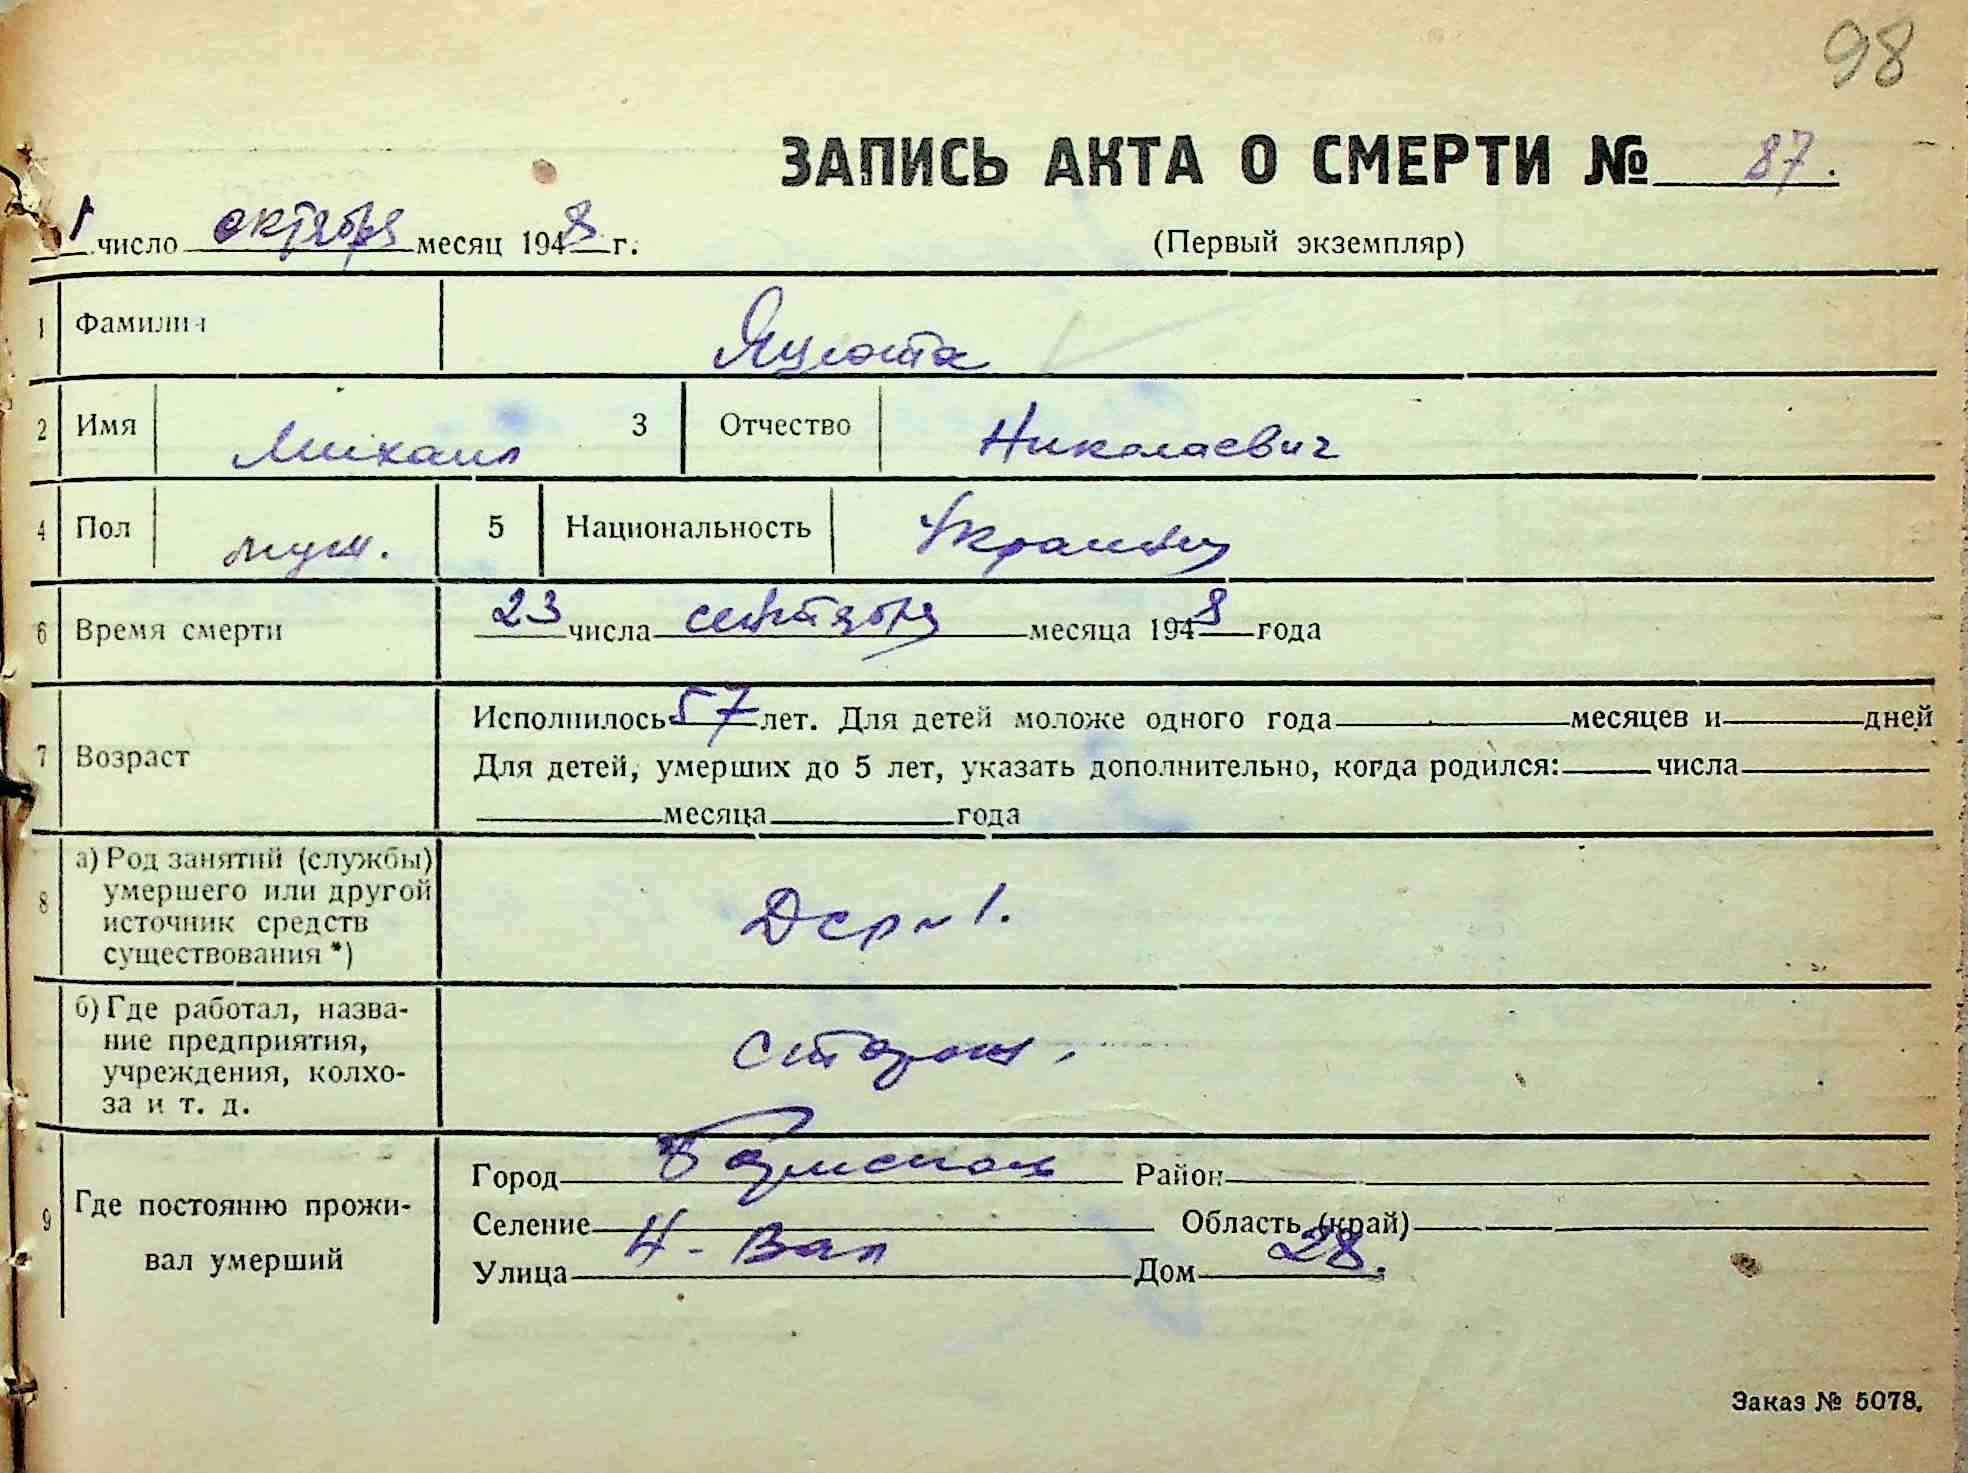 98
ЗАПИСЬ АКТА О СМЕРТИ № 87.
1 число октября месяц 1948 г.
(Первый экземпляр)
1 Фамилия Яцюта
2 Имя Михаил 3 Отчество Николаевич
4 Пол муж. 5 Национальность Украинец
6 Время смерти 23 числа сентября месяца 1948 года
7 Возраст Исполнилось 57 лет. Для детей моложе одного года месяцев и дней
Для детей, умерших до 5 лет, указать дополнительно, когда родился: числа
месяца года
8 а) Род занятий (службы)
умершего или другой
источник средств
существования *)
Дср № 1.
б) Где работал, назва-
ние предприятия,
учреждения, колхо-
за и т. д.
сторож
9 Где постоянно прожи-
вал умерший
Город Район
Селение Область (край)
Улица Н-Вал Дом 28.
Заказ № 5078.